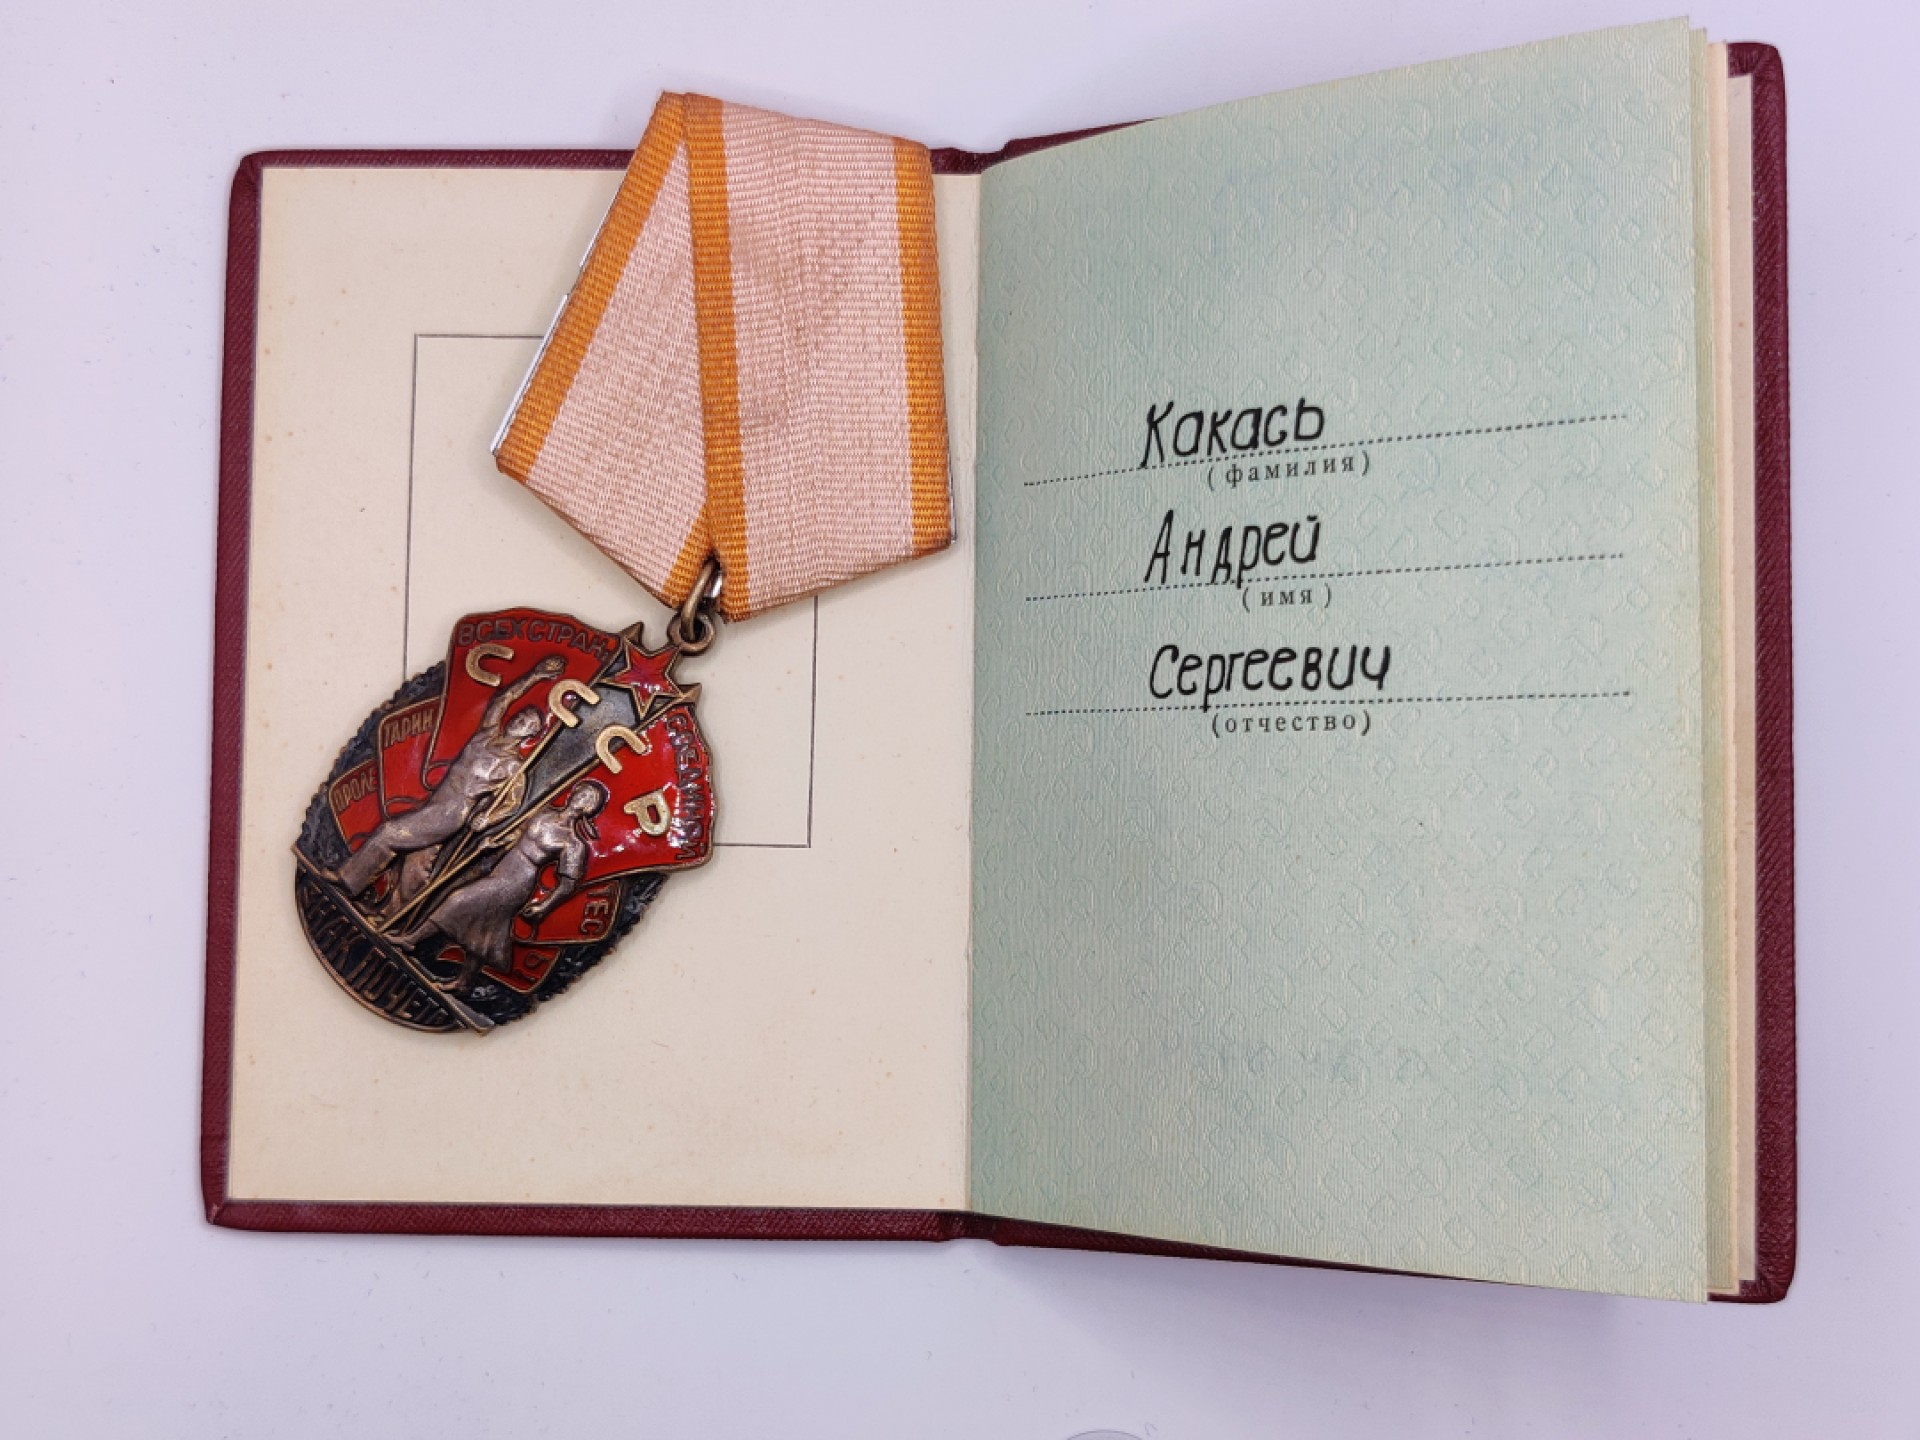 ВСЕХ СТРАН,
СССР
ТАРИИ
ПРОЛЕ
СОЕДИНЯЙ
ТЕС
Ь!
ЗНАК ПОЧЕТА
Какась
(фамилия)
Андрей
(имя)
Сергеевич
(отчество)